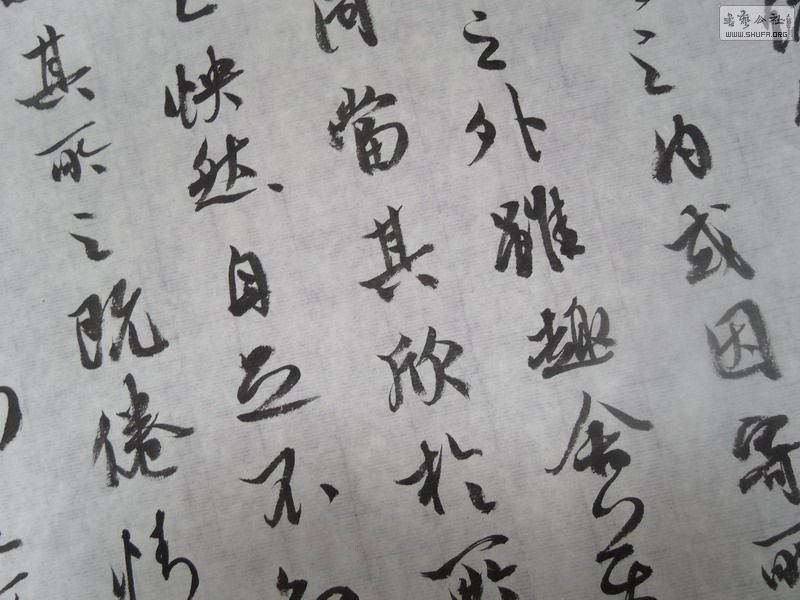 之内或因寄所
之外雖趣舍萬
同當其欣於所
怏然自足不
其所之既倦情
書藝公社
WWW.SHUFA.ORG